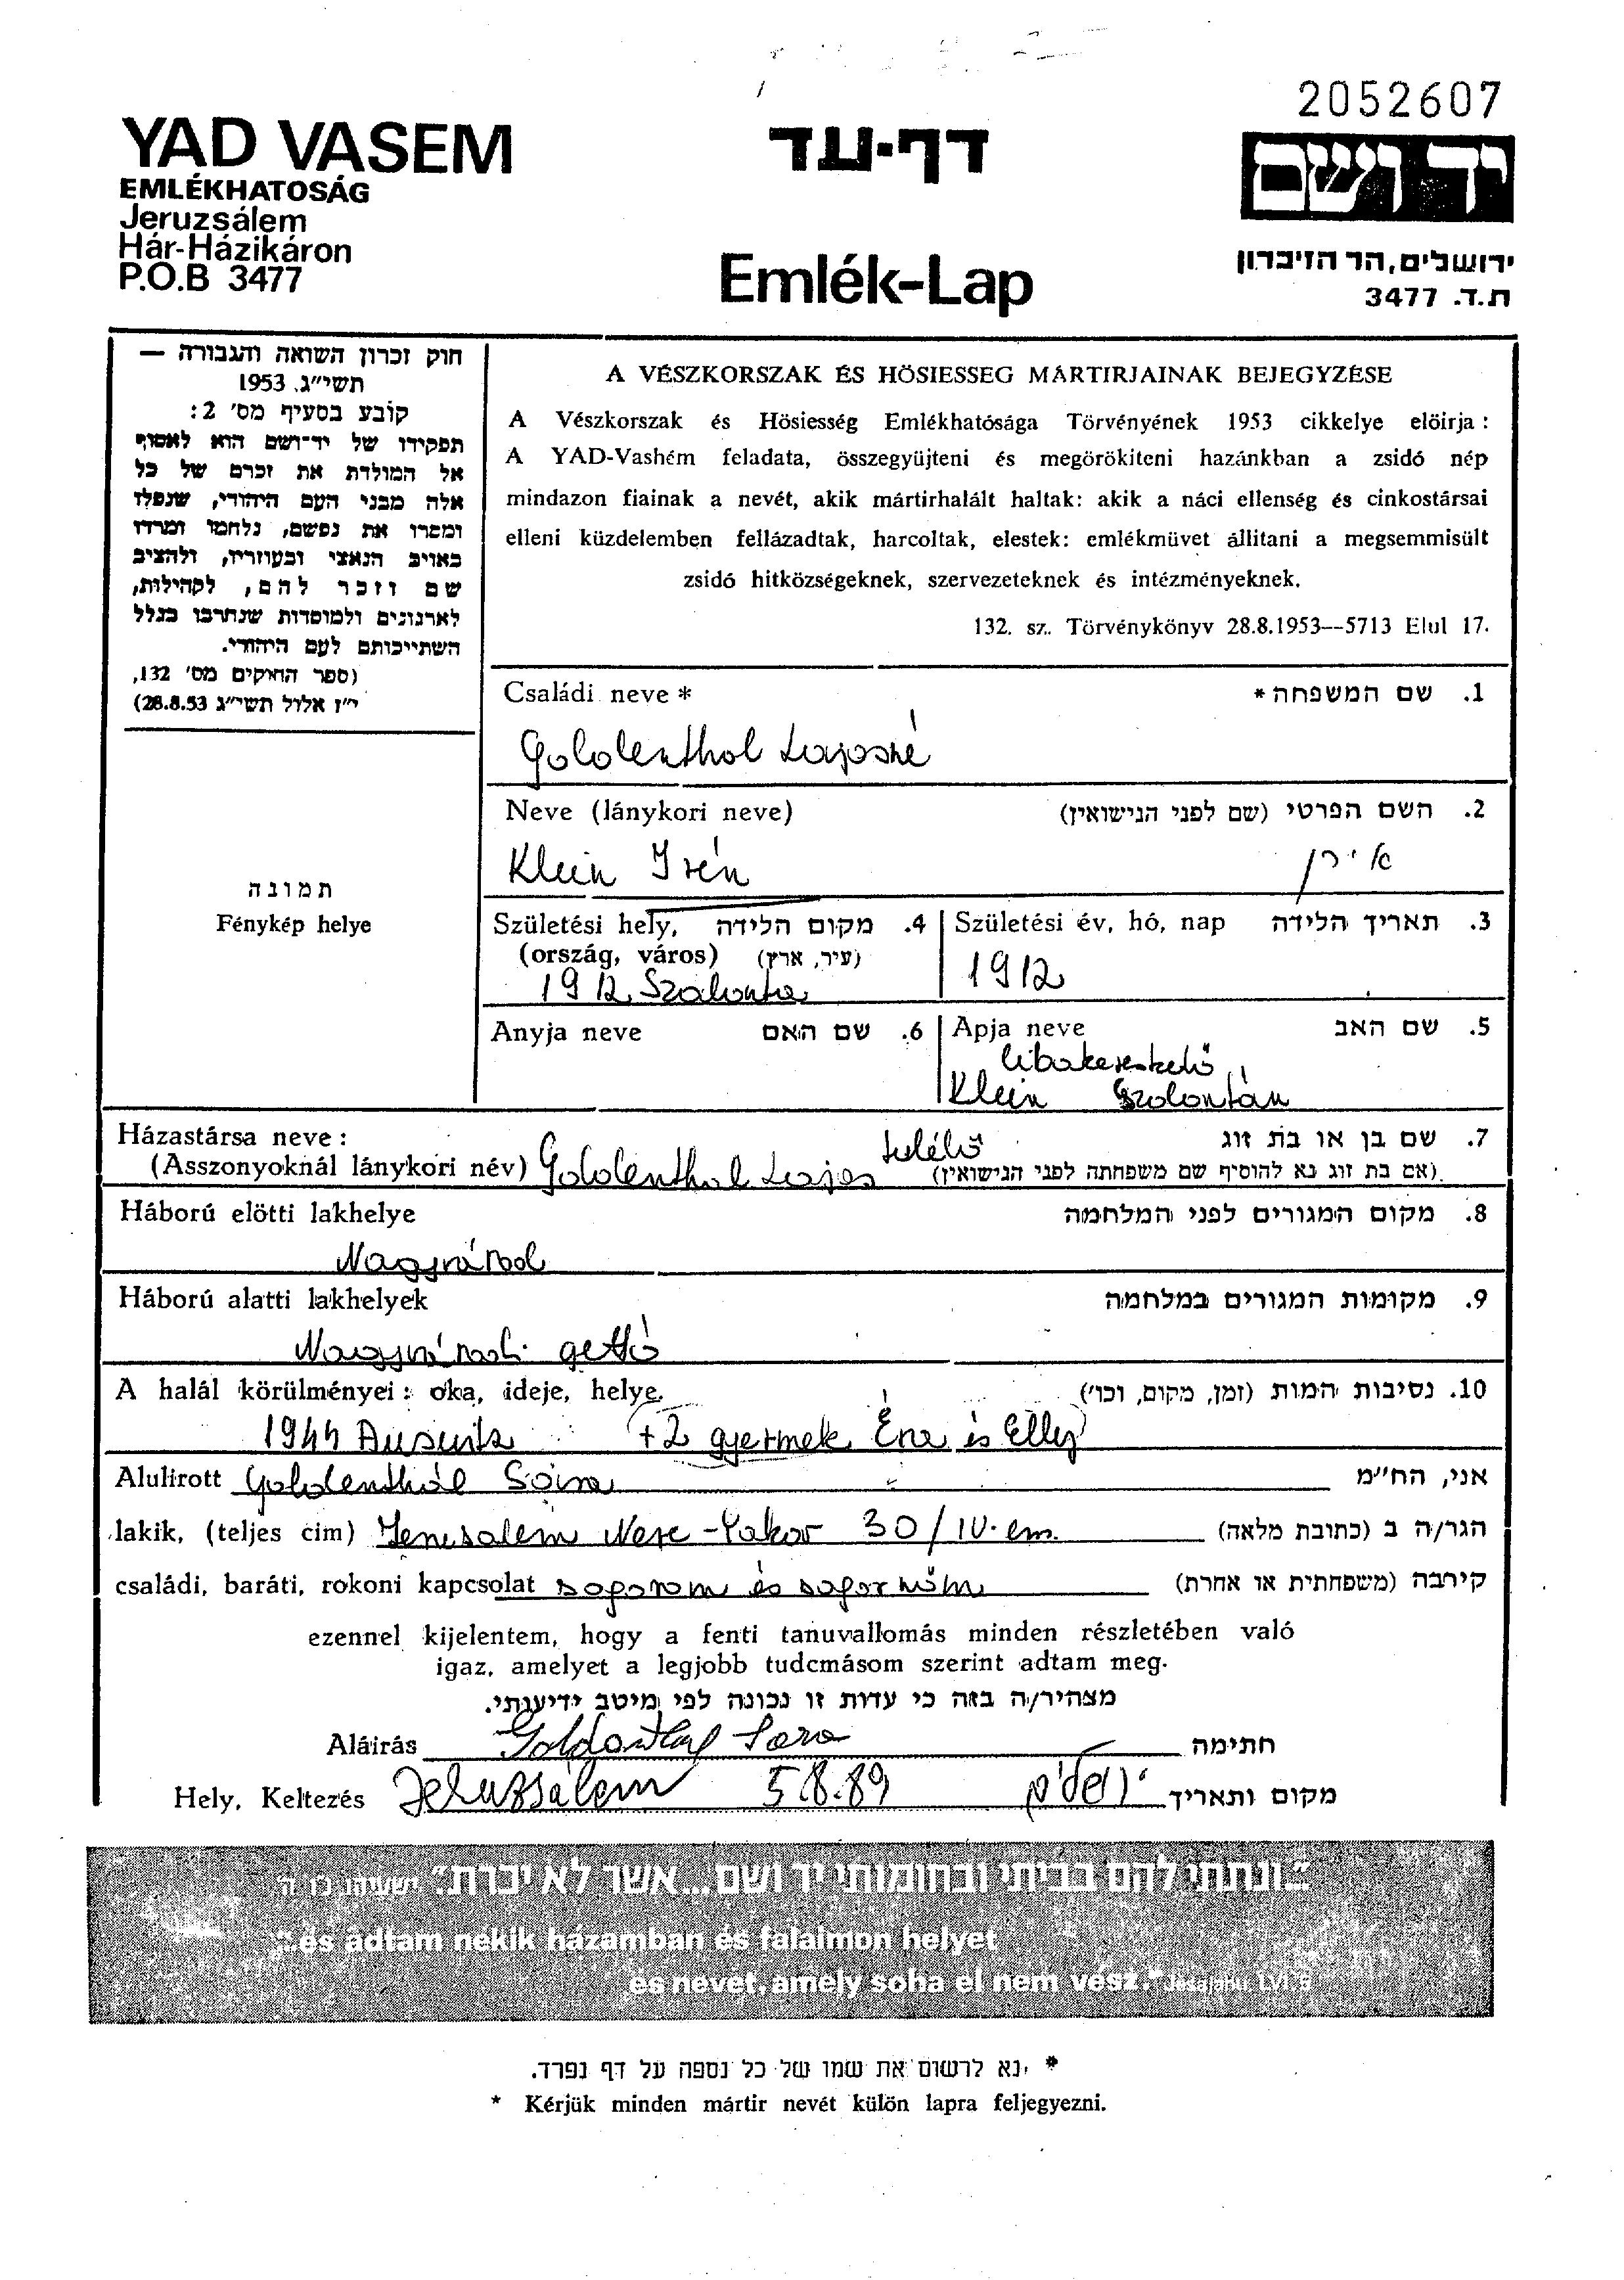 2052607
YAD VASEM
EMLÉKHATOSÁG
Jeruzsálem
Hár-Házikáron
P.O.B 3477
דף-עד
Emlék-Lap
יד ושם
ירושלים, הר הזיכרון
ת.ד. 3477
חוק זכרון השואה והגבורה —
תשי"ג, 1953
קובע בסעיף מס' 2:
תפקידו של יד-ושם הוא לאסוף
אל המולדת את זכרם של כל
אלה מבני העם היהודי, שנפלו
ומסרו את נפשם, נלחמו ומרדו
באויב הנאצי ובעוזריו, ולהציב
שם וזכר להם, לקהילות,
לארגונים ולמוסדות שנחרבו בגלל
השתייכותם לעם היהודי.
(ספר החוקים מס' 132,
י"ז אלול תשי"ג 28.8.53)
A VÉSZKORSZAK ÉS HÖSIESSEG MÁRTIRJAINAK BEJEGYZÉSE
A Vészkorszak és Hösiesség Emlékhatósága Törvényének 1953 cikkelye elöirja :
A YAD-Vashém feladata, összegyüjteni és megörökiteni hazánkban a zsidó nép
mindazon fiainak a nevét, akik mártirhalált haltak: akik a náci ellenség és cinkostársai
elleni küzdelemben fellázadtak, harcoltak, elestek: emlékmüvet állitani a megsemmisült
zsidó hitközségeknek, szervezeteknek és intézményeknek.
132. sz.. Törvénykönyv 28.8.1953--5713 Elul 17.
Családi neve * 1. שם המשפחה *
Goldenthál Lajosné
Neve (lánykori neve) 2. השם הפרטי (שם לפני הנישואין)
Klein Irén אירן
תמונה
Fénykép helye
Születési hely, 4. מקום הלידה
(ország, város) (עיר, ארץ)
1912 Szalonta
Születési év, hó, nap 3. תאריך הלידה
1912
Anyja neve 6. שם האם
Apja neve 5. שם האב
libakereskedő
Klein Szalontán
Házastársa neve : 7. שם בן או בת זוג
túlélő
(Asszonyoknál lánykori név) Goldenthal Lajos (אם בת זוג נא להוסיף שם משפחתה לפני הנישואין).
Háború elötti lakhelye 8. מקום המגורים לפני המלחמה
Nagyvárad
Háború alatti lakhelyek 9. מקומות המגורים במלחמה
Nagyváradi gettó
A halál körülményei : oka, ideje, helye. 10. נסיבות המות (זמן, מקום, וכו')
1944 Ausvitz +2 gyermek Éva és Elly
Alulirott Goldenthál Sára אני, הח"מ
lakik, (teljes cim) Jerusalem Neve-Yakov 30/IV. em. הגר/ה ב (כתובת מלאה)
családi, baráti, rokoni kapcsolat sogorom és sogornőm קירבה (משפחתית או אחרת)
ezennel kijelentem, hogy a fenti tanuvallomás minden részletében való
igaz, amelyet a legjobb tudcmásom szerint adtam meg.
מצהיר/ה בזה כי עדות זו נכונה לפי מיטב ידיעותי.
Aláirás Goldenthal Sara חתימה
Hely, Keltezés Jeruzsálem 5.8.89 ירושלים מקום ותאריך
"...ונתתי להם בביתי ובחומותי יד ושם...אשר לא יכרת." ישעיהו נו ה
"...és adtam nekik házamban és falaimon helyet
és nevet, amely soha el nem vész." Jesájáhu LVI.5
* נא לרשום את שמו של כל נספה על דף נפרד.
* Kérjük minden mártir nevét külön lapra feljegyezni.